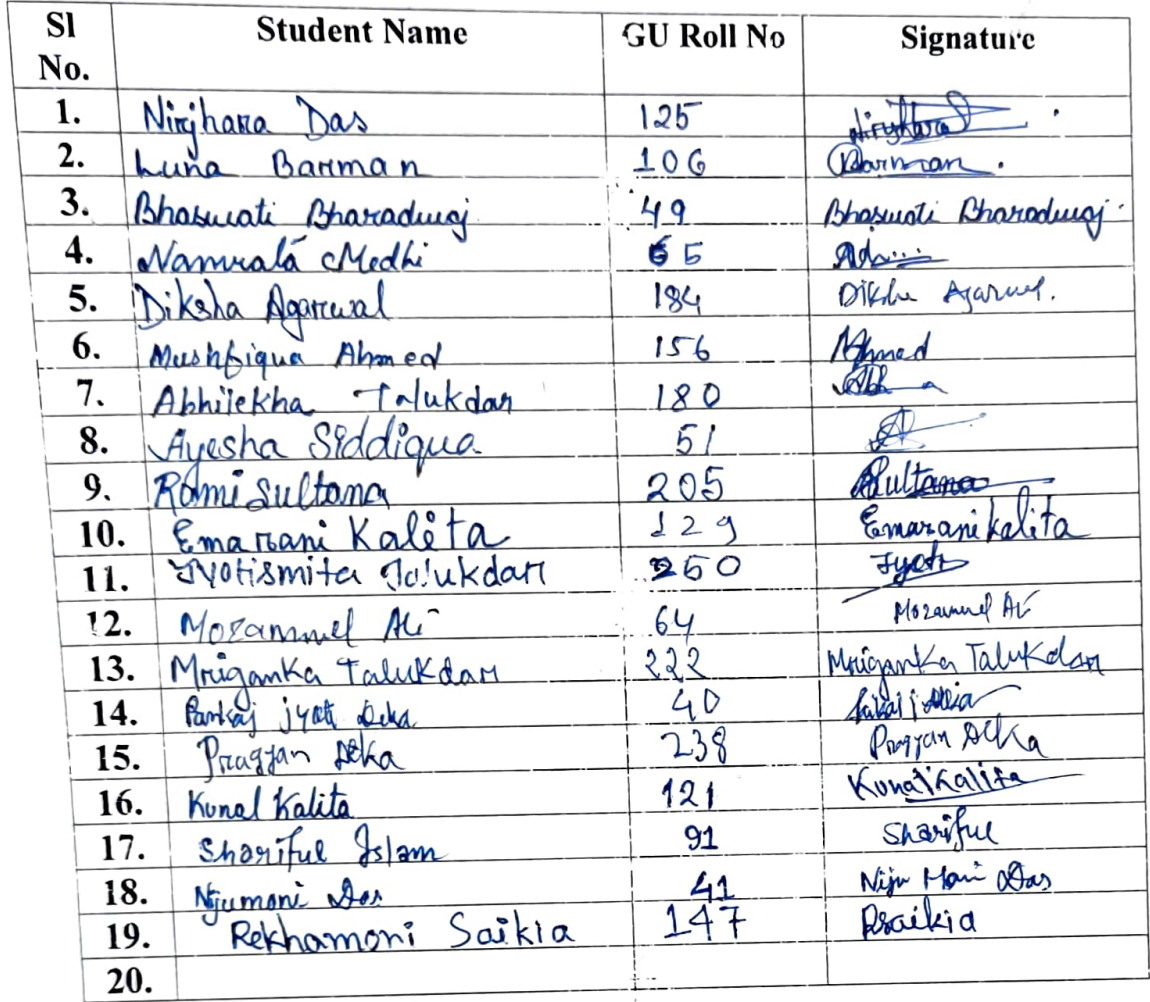 Sl No. Student Name GU Roll No Signature
1. Nirjhara Das 125
2. Luna Barman 106 Barman.
3. Bhaswati Bharadwaj 49 Bhaswati Bharadwaj.
4. Namrata Medhi 65
5. Diksha Agarwal 184 Diksha Agarwal.
6. Mushfiqua Ahmed 156 Ahmed
7. Abhilekha Talukdar 180
8. Ayesha Siddiqua 51
9. Rami Sultana 205 Sultana
10. Emarani Kalita 129 Emarani kalita
11. Jyotismita Talukdar 250 Jyoti
12. Mozammel Ali 64 Mozammel Ali
13. Mriganka Talukdar 222 Mriganka Talukdar
14. Pankaj jyoti Deka 40
15. Pragyan Deka 238 Pragyan Deka
16. Kunal Kalita 121 Kunal Kalita
17. Shariful Islam 91 Shariful
18. Nijumoni Das 41 Niju Moni Das
19. Rekhamoni Saikia 147 Rsaikia
20.